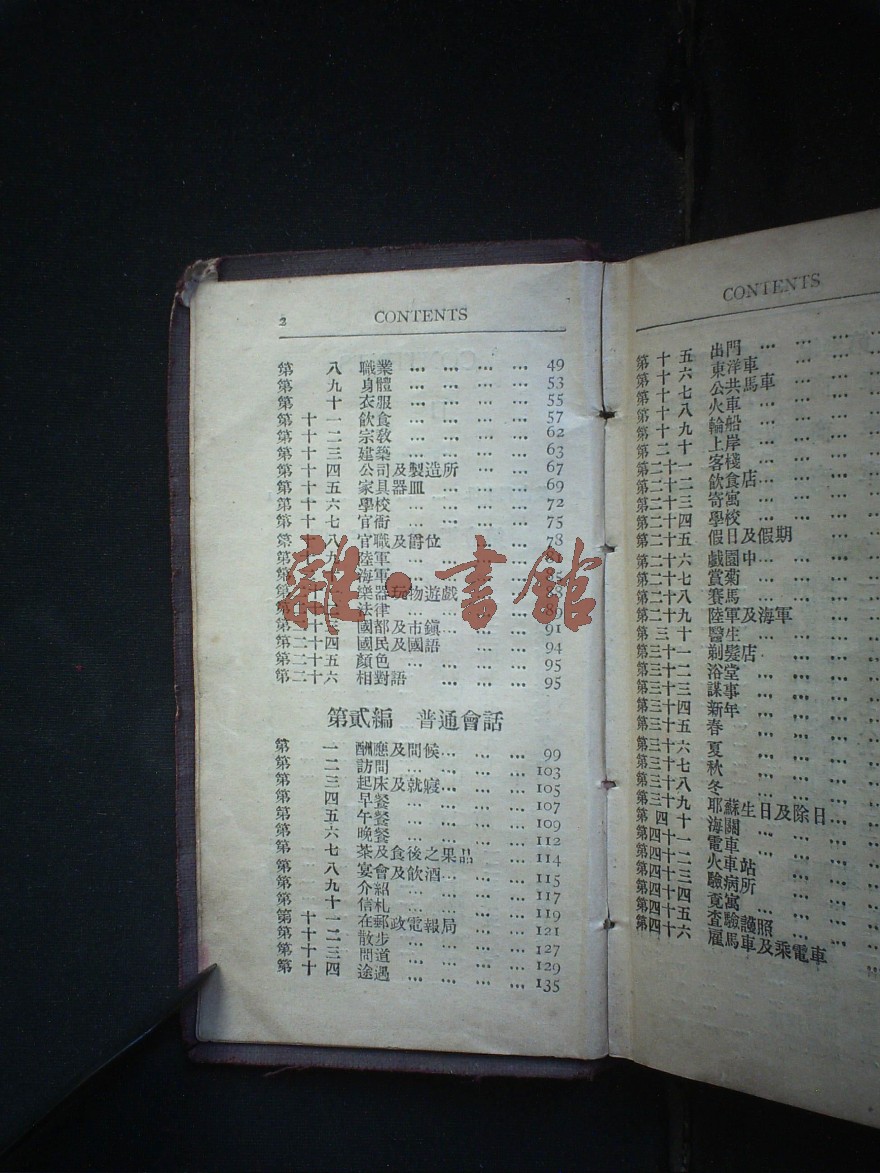 2 CONTENTS
第 八 職業 ... ... ... ... 49
第 九 身體 ... ... ... ... 53
第 十 衣服 ... ... ... ... 55
第十一 飲食 ... ... ... ... 57
第十二 宗教 ... ... ... ... 62
第十三 建築 ... ... ... ... 63
第十四 公司及製造所 ... ... 67
第十五 家具器皿 ... ... ... 69
第十六 學校 ... ... ... ... 72
第十七 官衙 ... ... ... ... 75
第十八 官職及爵位 ... ... 78
第十九 陸軍 ... ... ... ...
海軍 ... ... ... ... 85
樂器玩物遊戲 ... ... 88
法律 ... ... ... ... 89
第二十三 國都及市鎭... ... ... 91
第二十四 國民及國語 ... ... 94
第二十五 顏色 ... ... ... ... 95
第二十六 相對語 ... ... ... 95
第貳編 普通會話
第 一 酬應及問候... ... ... 99
第 二 訪問 ... ... ... ... 103
第 三 起床及就寢... ... ... 105
第 四 早餐 ... ... ... ... 107
第 五 午餐 ... ... ... ... 109
第 六 晚餐 ... ... ... ... 112
第 七 茶及食後之果品 ... ... 114
第 八 宴會及飲酒... ... ... 115
第 九 介紹 ... ... ... ... 117
第 十 信札 ... ... ... ... 119
第十一 在郵政電報局 ... ... 121
第十二 散步 ... ... ... ... 127
第十三 問道 ... ... ... ... 129
第十四 途遇 ... ... ... ... 135
CONTENTS
第十五 出門 ... ... ...
第十六 東洋車 ... ...
第十七 公共馬車 ... ...
第十八 火車 ... ... ...
第十九 輪船 ... ... ...
第二十 上岸 ... ... ...
第二十一 客棧 ... ... ...
第二十二 飲食店... ...
第二十三 寄寓 ... ... ...
第二十四 學校 ... ... ...
第二十五 假日及假期 ...
第二十六 戲園中... ...
第二十七 賞菊 ... ... ...
第二十八 賽馬 ... ... ...
第二十九 陸軍及海軍 ...
第三十 醫生 ... ... ...
第三十一 剃髮店 ... ...
第三十二 浴堂 ... ... ...
第三十三 謀事 ... ... ...
第三十四 新年 ... ... ...
第三十五 春 ... ... ...
第三十六 夏 ... ... ...
第三十七 秋 ... ... ...
第三十八 冬 ... ... ...
第三十九 耶蘇生日及除日...
第四十 海關 ... ...
第四十一 電車 ... ...
第四十二 火車站 ...
第四十三 驗病所 ...
第四十四 覓寓 ... ...
第四十五 查驗護照 ...
第四十六 雇馬車及乘電車 ...
雜·書館